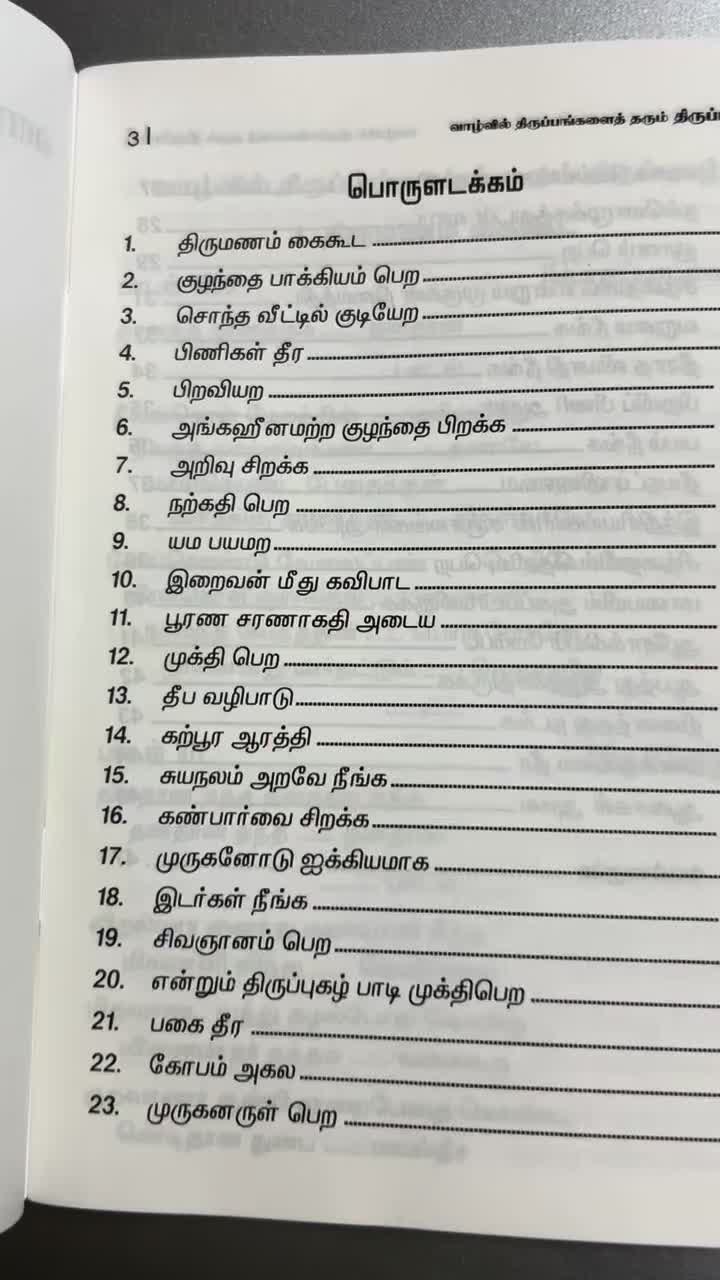 3 | வாழ்வில் திருப்பங்களைத் தரும்
பொருளடக்கம்
1. திருமணம் கைகூட
2. குழந்தை பாக்கியம் பெற
3. சொந்த வீட்டில் குடியேற
4. பிணிகள் தீர
5. பிறவியற
6. அங்கஹீனமற்ற குழந்தை பிறக்க
7. அறிவு சிறக்க
8. நற்கதி பெற
9. யம பயமற
10. இறைவன் மீது கவிபாட
11. பூரண சரணாகதி அடைய
12. முக்தி பெற
13. தீப வழிபாடு
14. கற்பூர ஆரத்தி
15. சுயநலம் அறவே நீங்க
16. கண்பார்வை சிறக்க
17. முருகனோடு ஐக்கியமாக
18. இடர்கள் நீங்க
19. சிவஞானம் பெற
20. என்றும் திருப்புகழ் பாடி முக்திபெற
21. பகை தீர
22. கோபம் அகல
23. முருகனருள் பெற